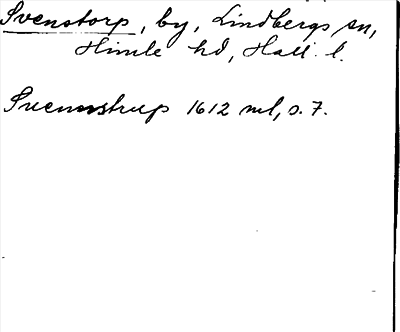 Svenstorp, by, Lindbergs sn,
Himle hd, Hall. l.
Svennstrup 1612 ml, s. 7.